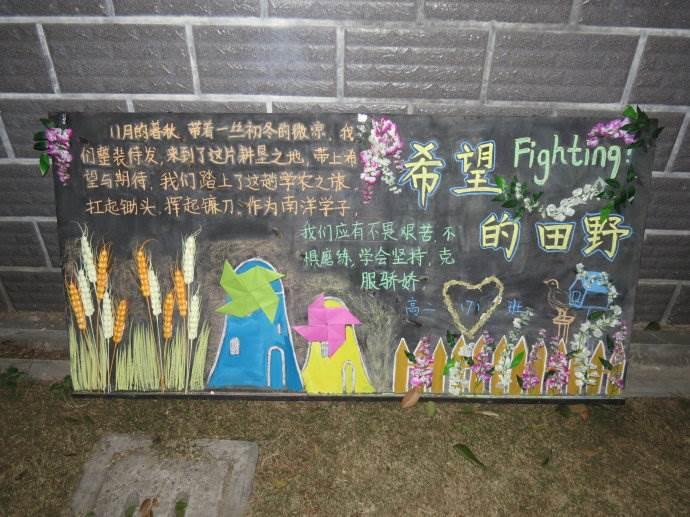 11月的暮秋，带着一丝初冬的微凉，我
们整装待发，来到了这片耕垦之地，带上希
望与期待，我们踏上了这趟学农之旅，
扛起锄头，挥起镰刀，作为南洋学子，
我们应有不畏艰苦，不
惧磨练，学会坚持，克
服骄娇
希望
Fighting:
的田野
高二 班